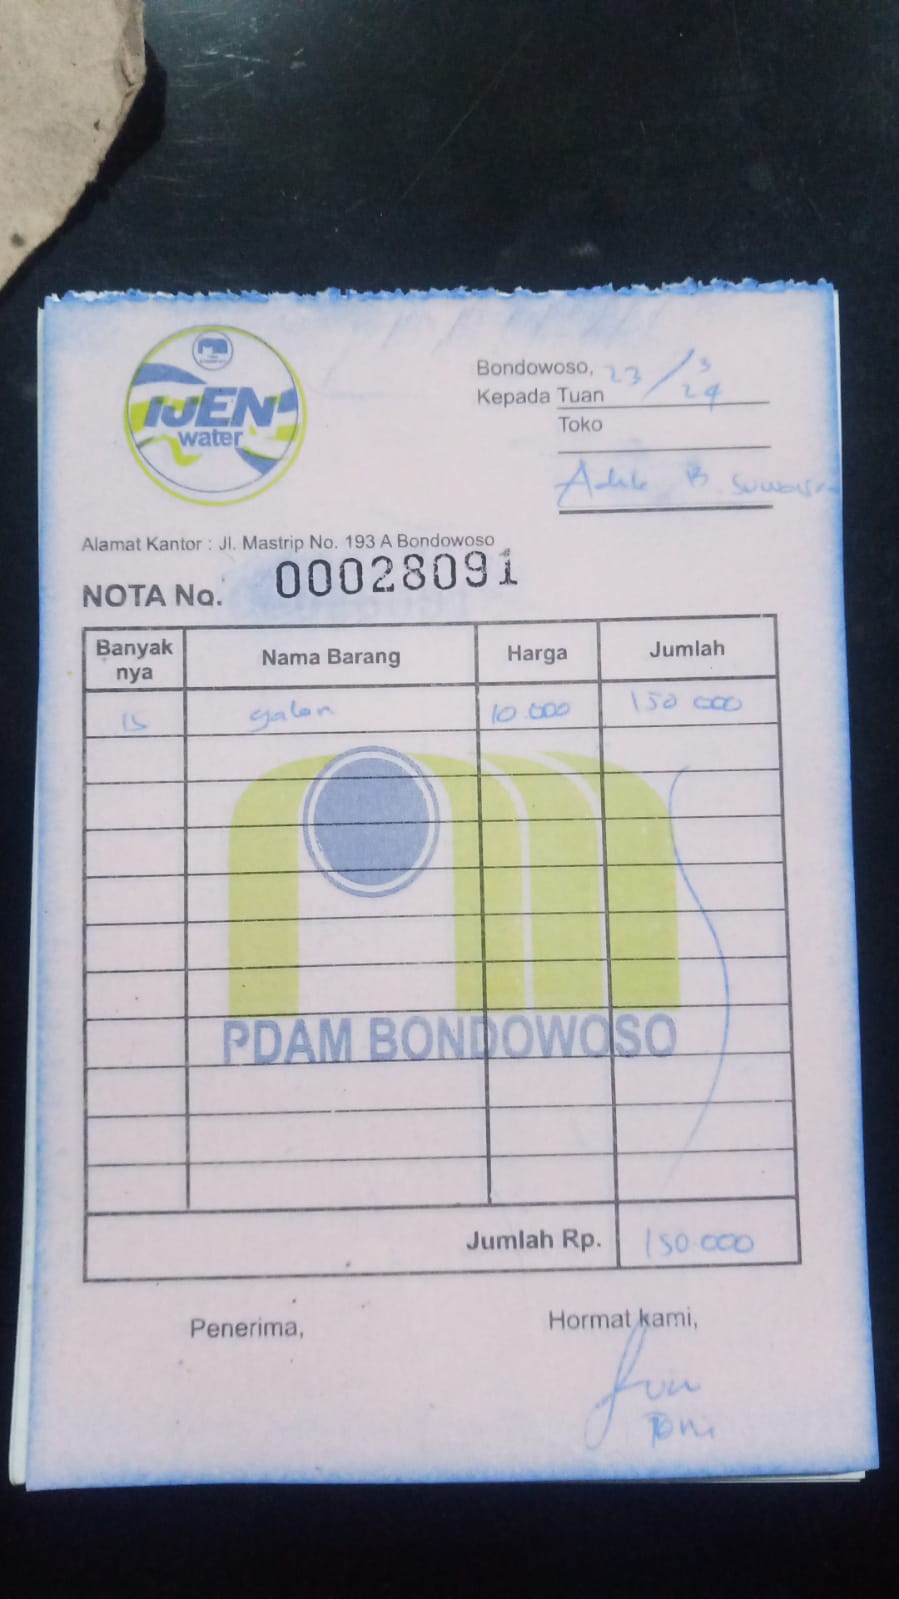 IJEN
water
Bondowoso, 23/3
24
Kepada Tuan
Toko
B. Suwarn
Alamat Kantor : Jl. Mastrip No. 193 A Bondowoso
NOTA No. 00028091
Banyak nya Nama Barang Harga Jumlah
15 galon 10.000 150.000
PDAM BONDOWOSO
Jumlah Rp. 150.000
Penerima, Hormat kami,
Toni